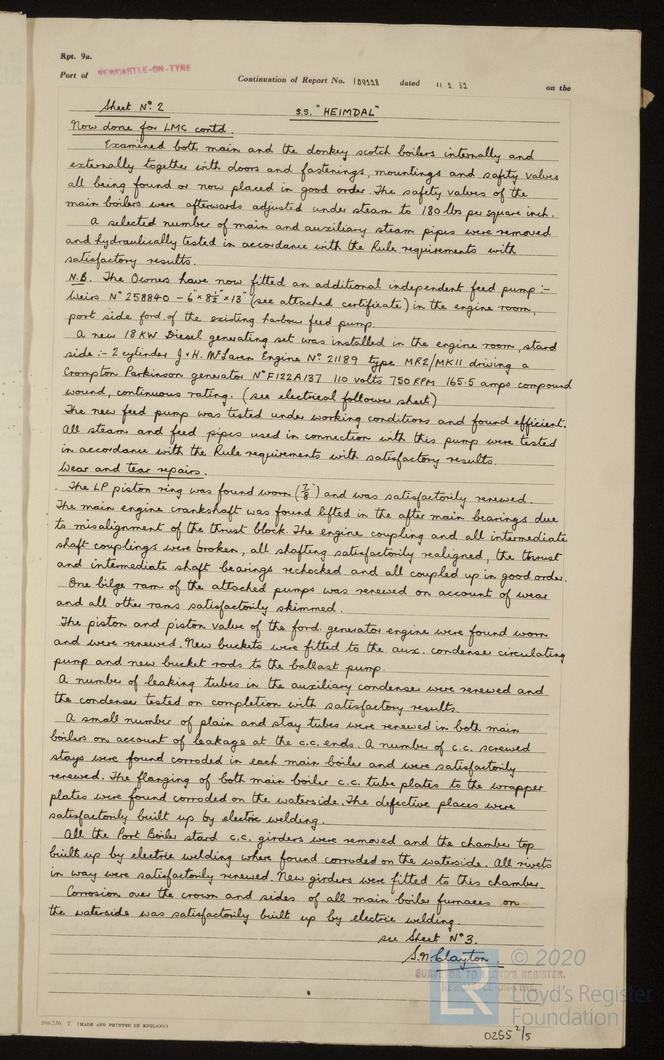 Rpt. 9a.
Port of NEWCASTLE-ON-TYNE
Continuation of Report No. 109228 dated 11. 2. 52 on the
Sheet No. 2 S.S. "HEIMDAL"
Now done for LMC contd.
Examined both main and the donkey scotch boilers internally and
externally together with doors and fastenings, mountings and safety valves
all being found or now placed in good order. The safety valves of the
main boilers were afterwards adjusted under steam to 180 lbs per square inch.
A selected number of main and auxiliary steam pipes were removed
and hydraulically tested in accordance with the Rule requirements with
satisfactory results.
N.B. The Owners have now fitted an additional independent feed pump :-
Weirs No 258840 - 6" x 8½" x 13" (see attached certificate) in the engine room,
port side ford. of the existing harbour feed pump.
A new 18 KW Diesel generating set was installed in the engine room, stard
side :- 2 cylinder J & H. McLaren Engine No. 21189 type MR2/MKII driving a
Crompton Parkinson generator No F122A137 110 volts 750 RPM 165.5 amps compound
wound, continuous rating. (see electrical follower sheet)
The new feed pump was tested under working conditions and found efficient.
All steam and feed pipes used in connection with this pump were tested
in accordance with the Rule requirements with satisfactory results.
Wear and tear repairs.
The LP piston ring was found worn (7/8") and was satisfactorily renewed.
The main engine crankshaft was found lifted in the after main bearings due
to misalignment of the thrust block. The engine coupling and all intermediate
shaft couplings were broken, all shafting satisfactorily realigned, the thrust
and intermediate shaft bearings rechocked and all coupled up in good order.
One bilge ram of the attached pumps was renewed on account of wear
and all other rams satisfactorily skimmed.
The piston and piston valve of the ford. generator engine were found worn
and were renewed. New buckets were fitted to the aux. condenser circulating
pump and new bucket rods to the ballast pump.
A number of leaking tubes in the auxiliary condenser were renewed and
the condenser tested on completion with satisfactory results.
A small number of plain and stay tubes were renewed in both main
boilers on account of leakage at the c.c. ends. A number of c.c. screwed
stays were found corroded in each main boiler and were satisfactorily
renewed. The flanging of both main boiler c.c. tube plates to the wrapper
plates were found corroded on the waterside. The defective places were
satisfactorily built up by electric welding.
All the Port Boiler stard c.c. girders were removed and the chamber top
built up by electric welding where found corroded on the waterside. All rivets
in way were satisfactorily renewed. New girders were fitted to this chamber.
Corrosion over the crown and sides of all main boiler furnaces on
the waterside was satisfactorily built up by electric welding.
see Sheet No 3.
S.N. Clayton.
SURVEYOR TO LLOYD'S REGISTER.
NEWCASTLE-ON-TYNE
LR © 2020
Lloyd's Register
Foundation
T. (MADE AND PRINTED IN ENGLAND)
0255 2/5